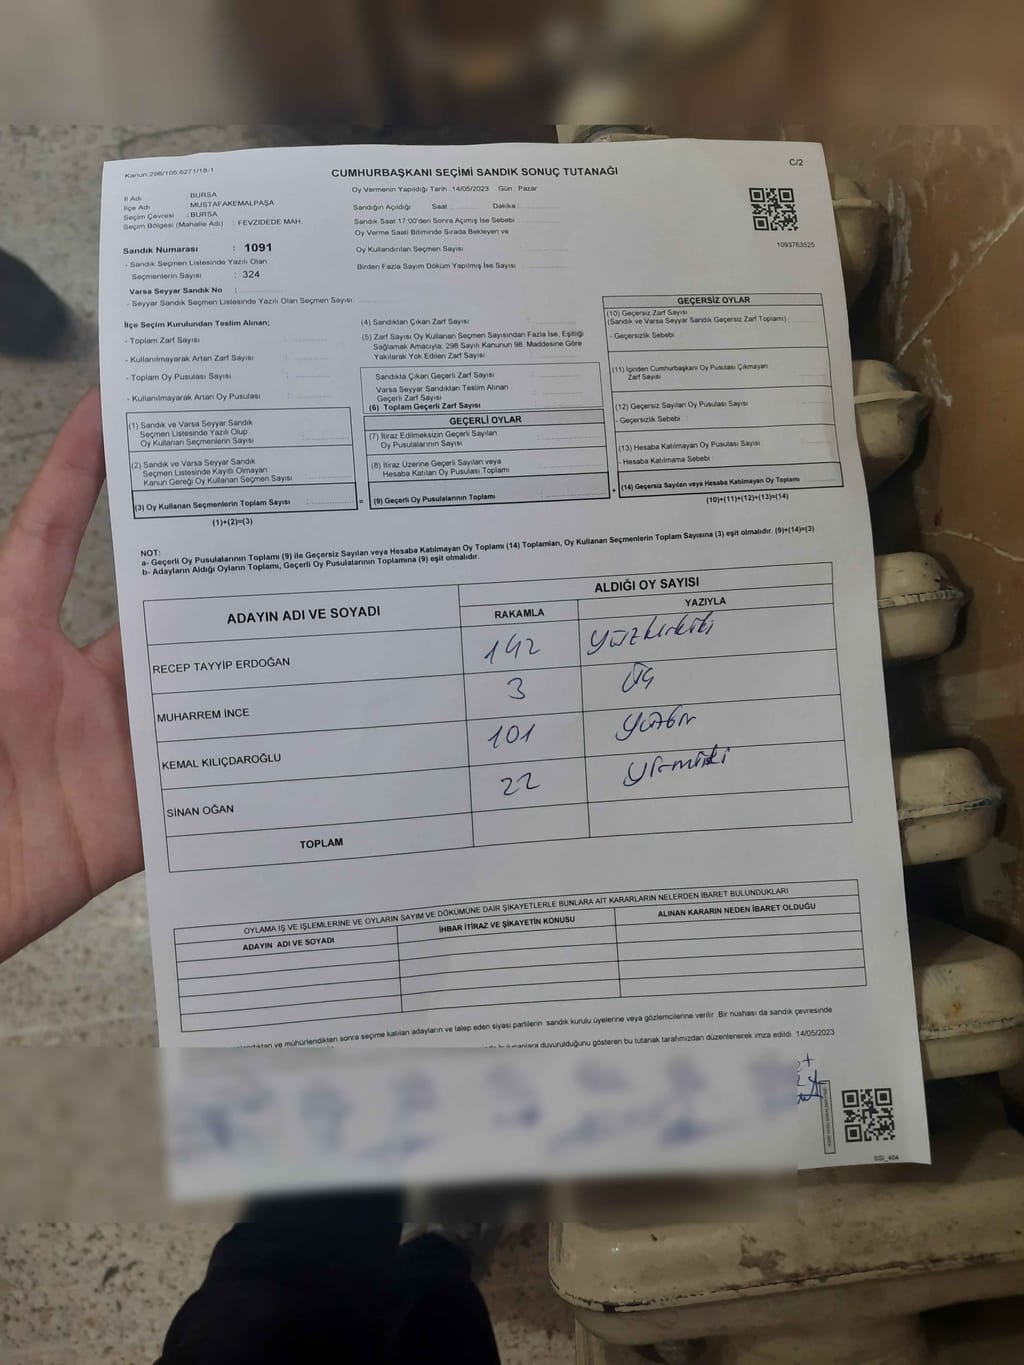 Kanun:298/105;6271/18-1
CUMHURBAŞKANI SEÇİMİ SANDIK SONUÇ TUTANAĞI
C/2
İl Adı : BURSA
İlçe Adı : MUSTAFAKEMALPAŞA
Seçim Çevresi : BURSA
Seçim Bölgesi (Mahalle Adı) : FEVZİDEDE MAH.
Sandık Numarası : 1091
- Sandık Seçmen Listesinde Yazılı Olan
Seçmenlerin Sayısı : 324
Varsa Seyyar Sandık No :
- Seyyar Sandık Seçmen Listesinde Yazılı Olan Seçmen Sayısı:
Oy Vermenin Yapıldığı Tarih : 14/05/2023 Gün : Pazar
Sandığın Açıldığı Saat : Dakika :
Sandık Saat 17:00'den Sonra Açımış İse Sebebi :
Oy Verme Saati Bitiminde Sırada Bekleyen ve
Oy Kullandırılan Seçmen Sayısı :
Birden Fazla Sayım Döküm Yapılmış İse Sayısı :
1093763525
İlçe Seçim Kurulundan Teslim Alınan;
- Toplam Zarf Sayısı :
- Kullanılmayarak Artan Zarf Sayısı :
- Toplam Oy Pusulası Sayısı :
- Kullanılmayarak Artan Oy Pusulası :
(1) Sandık ve Varsa Seyyar Sandık
Seçmen Listesinde Yazılı Olup
Oy Kullanan Seçmenlerin Sayısı :
(2) Sandık ve Varsa Seyyar Sandık
Seçmen Listesinde Kayıtlı Olmayan
Kanun Gereği Oy Kullanan Seçmen Sayısı :
(3) Oy Kullanan Seçmenlerin Toplam Sayısı :
(1)+(2)=(3)
(4) Sandıktan Çıkan Zarf Sayısı :
(5) Zarf Sayısı Oy Kullanan Seçmen Sayısından Fazla İse, Eşitliği
Sağlamak Amacıyla; 298 Sayılı Kanunun 98. Maddesine Göre
Yakılarak Yok Edilen Zarf Sayısı :
Sandıkta Çıkan Geçerli Zarf Sayısı :
Varsa Seyyar Sandıktan Teslim Alınan
Geçerli Zarf Sayısı :
(6) Toplam Geçerli Zarf Sayısı :
GEÇERLİ OYLAR
(7) İtiraz Edilmeksizin Geçerli Sayılan
Oy Pusulalarının Sayısı :
(8) İtiraz Üzerine Geçerli Sayılan veya
Hesaba Katılan Oy Pusulası Toplamı :
= (9) Geçerli Oy Pusulalarının Toplamı : +
GEÇERSİZ OYLAR
(10) Geçersiz Zarf Sayısı
(Sandık ve Varsa Seyyar Sandık Geçersiz Zarf Toplamı) :
- Geçersizlik Sebebi :
(11) İçinden Cumhurbaşkanı Oy Pusulası Çıkmayan
Zarf Sayısı :
(12) Geçersiz Sayılan Oy Pusulası Sayısı :
- Geçersizlik Sebebi :
(13) Hesaba Katılmayan Oy Pusulası Sayısı :
- Hesaba Katılmama Sebebi :
(14) Geçersiz Sayılan veya Hesaba Katılmayan Oy Toplamı :
(10)+(11)+(12)+(13)=(14)
NOT:
a- Geçerli Oy Pusulalarının Toplamı (9) ile Geçersiz Sayılan veya Hesaba Katılmayan Oy Toplamı (14) Toplamları, Oy Kullanan Seçmenlerin Toplam Sayısına (3) eşit olmalıdır. (9)+(14)=(3)
b- Adayların Aldığı Oyların Toplamı, Geçerli Oy Pusulalarının Toplamına (9) eşit olmalıdır.
ADAYIN ADI VE SOYADI ALDIĞI OY SAYISI
RAKAMLA YAZIYLA
RECEP TAYYİP ERDOĞAN 142 yüzkırkiki
MUHARREM İNCE 3 üç
KEMAL KILIÇDAROĞLU 101 yüzbir
SİNAN OĞAN 22 yirmiiki
TOPLAM
OYLAMA İŞ VE İŞLEMLERİNE VE OYLARIN SAYIM VE DÖKÜMÜNE DAİR ŞİKAYETLERLE BUNLARA AİT KARARLARIN NELERDEN İBARET BULUNDUKLARI
ADAYIN ADI VE SOYADI İHBAR İTİRAZ VE ŞİKAYETİN KONUSU ALINAN KARARIN NEDEN İBARET OLDUĞU
ve mühürlendikten sonra seçime katılan adayların ve talep eden siyasi partilerin sandık kurulu üyelerine veya gözlemcilerine verilir. Bir nüshası da sandık çevresinde
duyurulduğunu gösteren bu tutanak tarafımızdan düzenlenerek imza edildi. 14/05/2023
SSİ_404